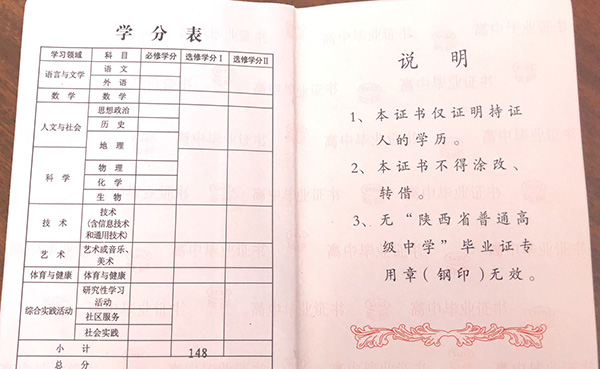 学分表
学习领域 科目 必修学分 选修学分Ⅰ 选修学分Ⅱ
语言与文学 语文
外语
数学 数学
人文与社会 思想政治
历史
地理
科学 物理
化学
生物
技术 技术
(含信息技术
和通用技术)
艺术 艺术或音乐、
美术
体育与健康 体育与健康
综合实践活动 研究性学习
活动
社区服务
社会实践
小计 148
总分
说明
1、本证书仅证明持证
人的学历。
2、本证书不得涂改、
转借。
3、无“陕西省普通高
级中学”毕业证专
用章(钢印)无效。